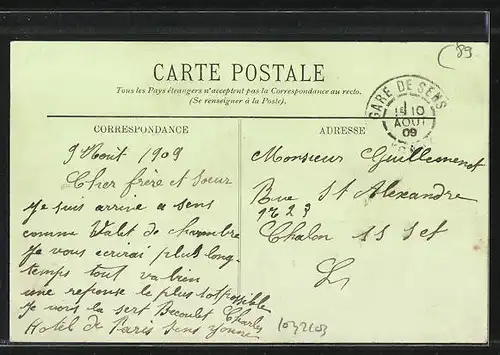 (89
CARTE POSTALE
Tous les Pays étrangers n'acceptent pas la Correspondance au recto.
(Se renseigner à la Poste).
GARE DE SENS
15 10
AOUT
09
CORRESPONDANCE
9 Aout 1909
Cher frère et soeur
Je suis arrive a sens
comme Valet de chambre
Je vous ecrirai plus long-
temps tout va bien
une reponse le plus sot possible
Je vois la sert Charles
Hotel de Paris Sens Yonne
ADRESSE
Monsieur Guillemenot
Rue St Alexandre
N° 23
Chalon SS Set
L